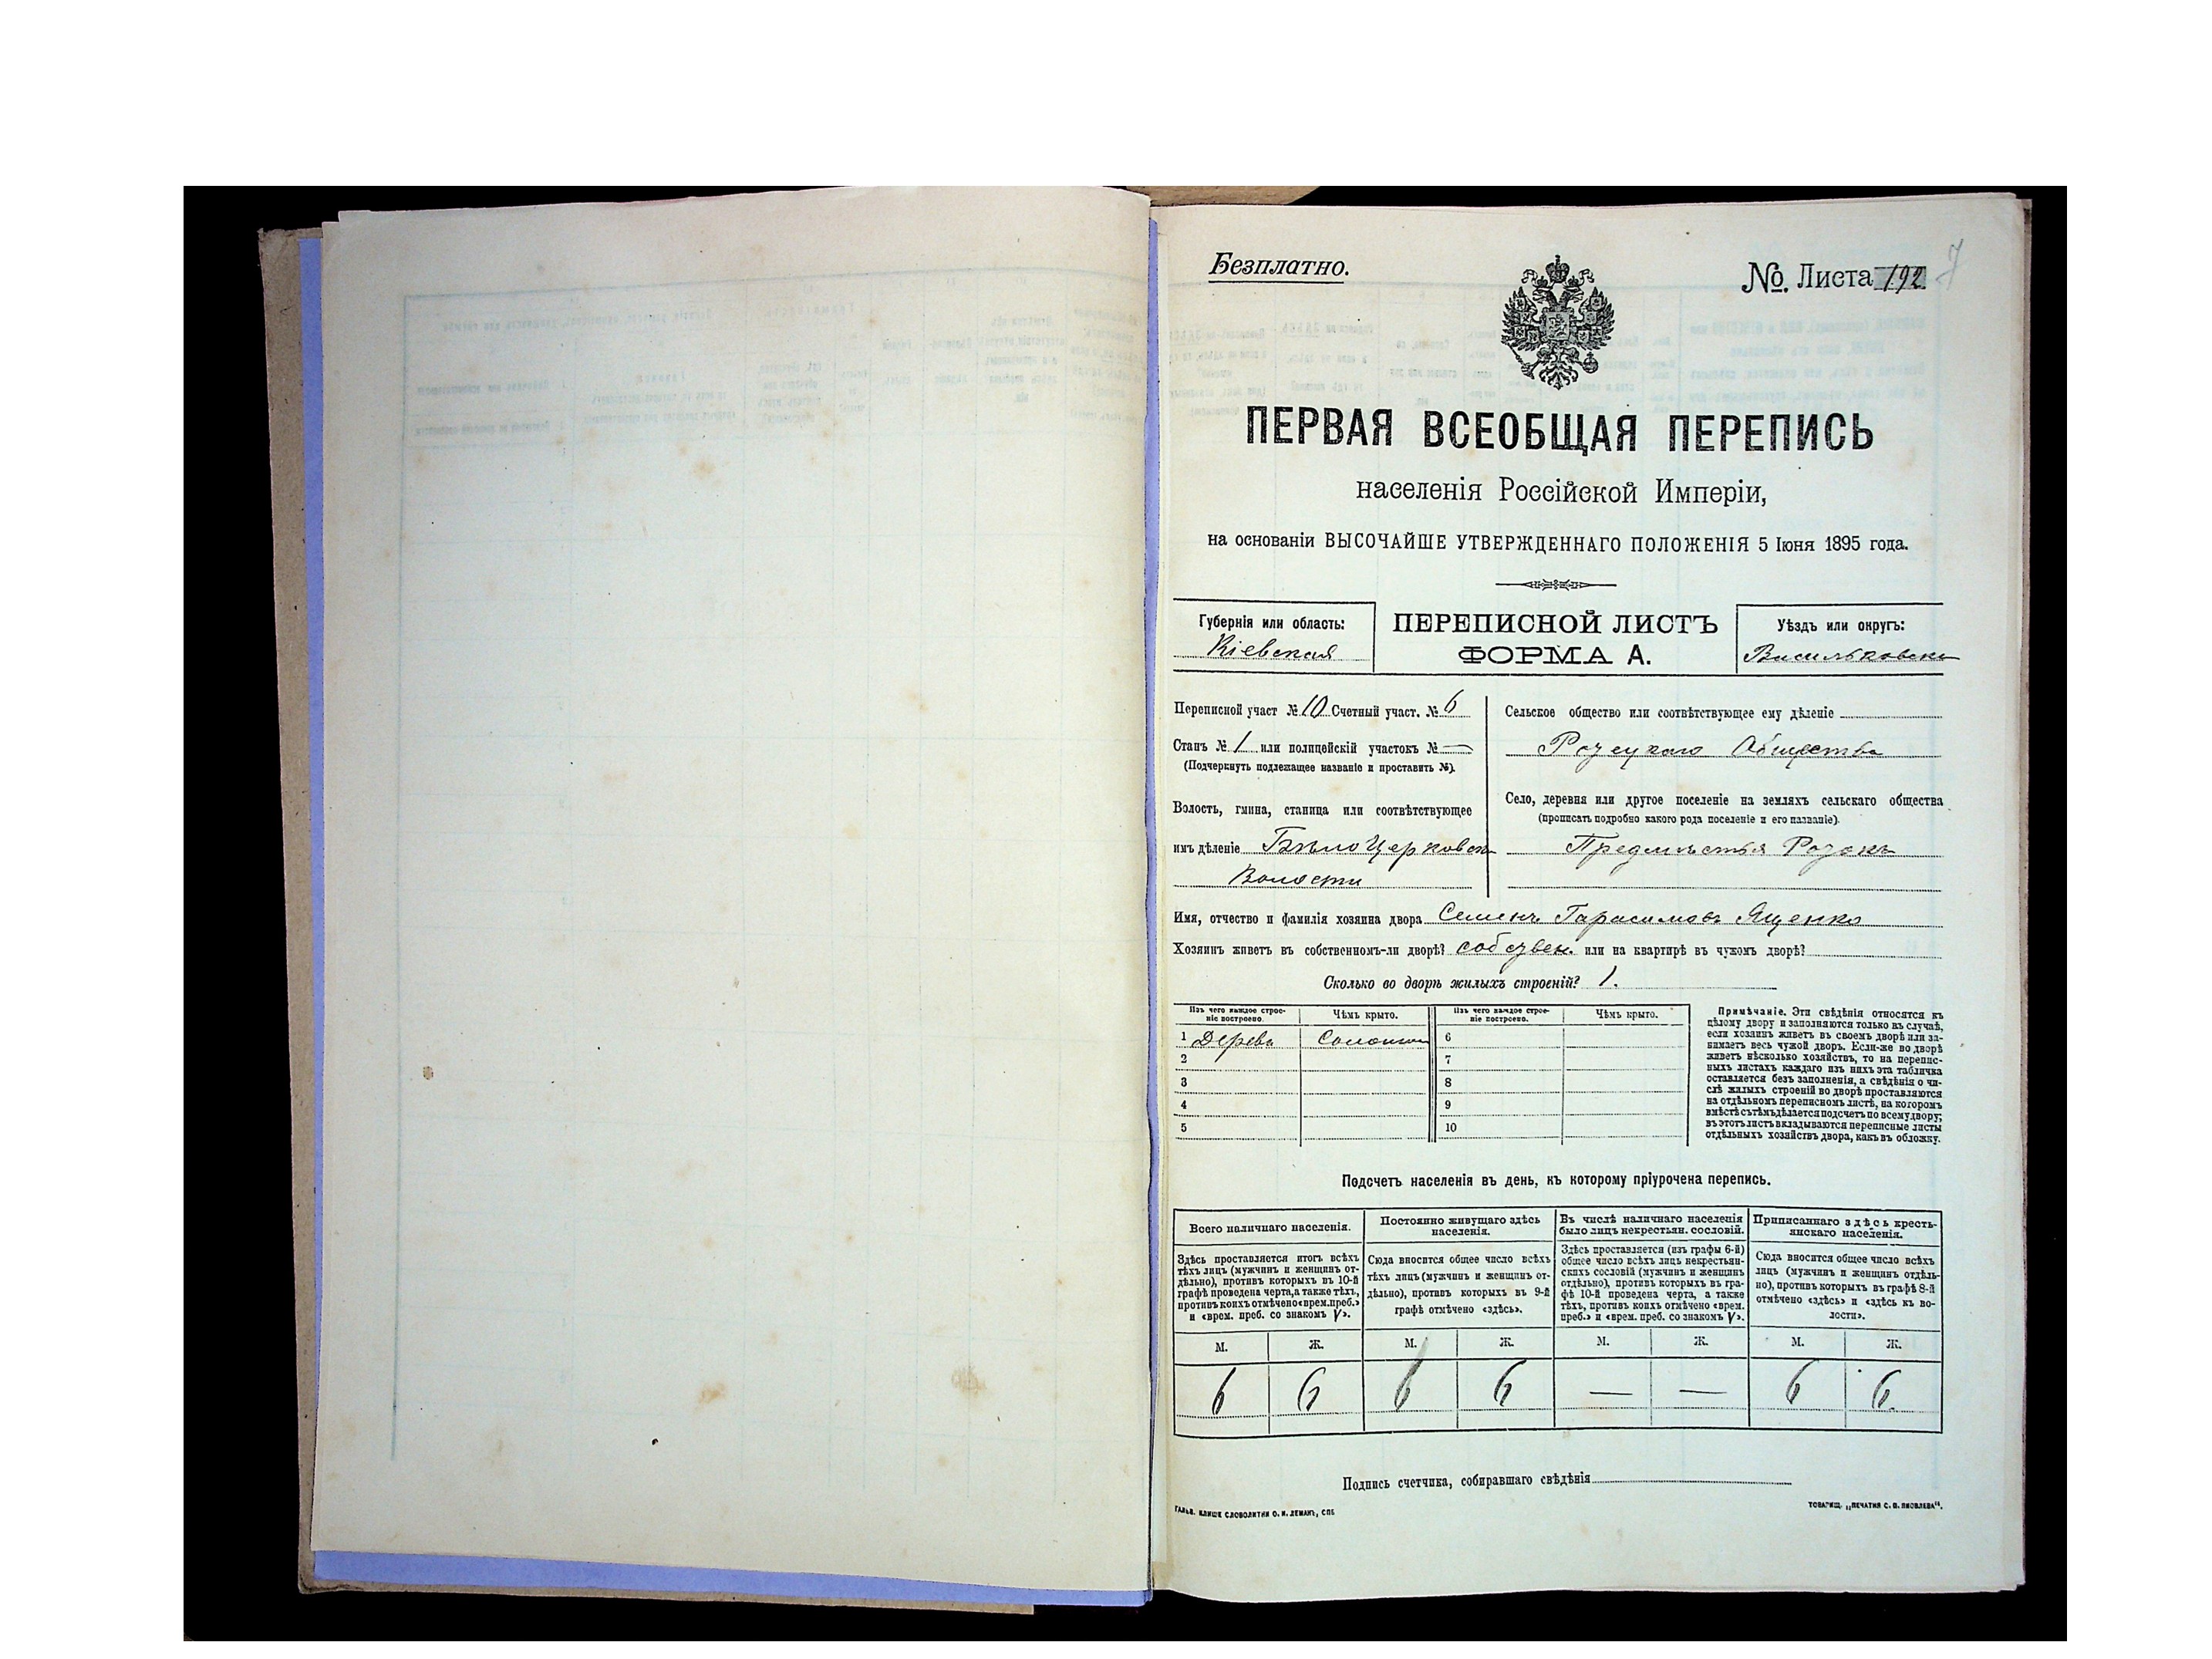 Безплатно.
№. Листа 192
7
ПЕРВАЯ ВСЕОБЩАЯ ПЕРЕПИСЬ
населенія Россійской Имперіи,
на основаніи ВЫСОЧАЙШЕ УТВЕРЖДЕННАГО ПОЛОЖЕНІЯ 5 Іюня 1895 года.
Губернія или область:
Кіевская
ПЕРЕПИСНОЙ ЛИСТЪ
ФОРМА А.
Уѣздъ или округъ:
Васильковски
Переписной участ № 10 Счетный участ. № 6
Станъ № 1 или полицейскій участокъ № —
(Подчеркнуть подлежащее названіе и проставить №).
Волость, гмина, станица или соотвѣтствующее
имъ дѣленіе БѣлоЦерковск
Волости
Сельское общество или соотвѣтствующее ему дѣленіе
Общества
Село, деревня или другое поселеніе на земляхъ сельскаго общества
(прописать подробно какого рода поселеніе и его названіе).
Предмѣстья
Имя, отчество и фамилія хозяина двора Семенъ Гарасимовъ Ященко
Хозяинъ живетъ въ собственномъ-ли дворѣ? собствен. или на квартирѣ въ чужомъ дворѣ?
Сколько во дворѣ жилыхъ строеній? 1.
Изъ чего каждое строе-
ніе построено.
Чѣмъ крыто.
Изъ чего каждое строе-
ніе построено.
Чѣмъ крыто.
1 Дерева Соломою 6
2 7
3 8
4 9
5 10
Примѣчаніе. Эти свѣдѣнія относятся къ
цѣлому двору и заполняются только въ случаѣ,
если хозяинъ живетъ въ своемъ дворѣ или за-
нимаетъ весь чужой дворъ. Если-же во дворѣ
живетъ нѣсколько хозяйствъ, то на перепис-
ныхъ листахъ каждаго изъ нихъ эта табличка
оставляется безъ заполненія, а свѣдѣнія о чи-
слѣ жилыхъ строеній во дворѣ проставляются
на отдѣльномъ переписномъ листѣ, на которомъ
вмѣстѣ съ тѣмъ дѣлается подсчетъ по всему двору;
въ этотъ листъ вкладываются переписные листы
отдѣльныхъ хозяйствъ двора, какъ въ обложку.
Подсчетъ населенія въ день, къ которому пріурочена перепись.
Всего наличнаго населенія.
Здѣсь проставляется итогъ всѣхъ
тѣхъ лицъ (мужчинъ и женщинъ от-
дѣльно), противъ которыхъ въ 10-й
графѣ проведена черта, а также тѣхъ,
противъ коихъ отмѣчено «врем. преб.»
и «врем. преб. со знакомъ V».
Постоянно живущаго здѣсь
населенія.
Сюда вносится общее число всѣхъ
тѣхъ лицъ (мужчинъ и женщинъ от-
дѣльно), противъ которыхъ въ 9-й
графѣ отмѣчено «здѣсь».
Въ числѣ наличнаго населенія
было лицъ некрестьян. сословій.
Здѣсь проставляется (изъ графы 6-й)
общее число всѣхъ лицъ некрестьян-
скихъ сословій (мужчинъ и женщинъ
отдѣльно), противъ которыхъ въ гра-
фѣ 10-й проведена черта, а также
тѣхъ, противъ коихъ отмѣчено «врем.
преб.» и «врем. преб. со знакомъ V».
Приписаннаго здѣсь кресть-
янскаго населенія.
Сюда вносится общее число всѣхъ
лицъ (мужчинъ и женщинъ отдѣль-
но), противъ которыхъ въ графѣ 8-й
отмѣчено «здѣсь» и «здѣсь къ во-
лости».
М. Ж. М. Ж. М. Ж. М. Ж.
6 6 6 6 — — 6 6.
Подпись счетчика, собиравшаго свѣдѣнія
ГАЛЬВ. КЛИШЕ СЛОВОЛИТНИ О. И. ЛЕМАНЪ, СПБ
ТОВАРИЩ. „ПЕЧАТНЯ С. П. ЯКОВЛЕВА“.